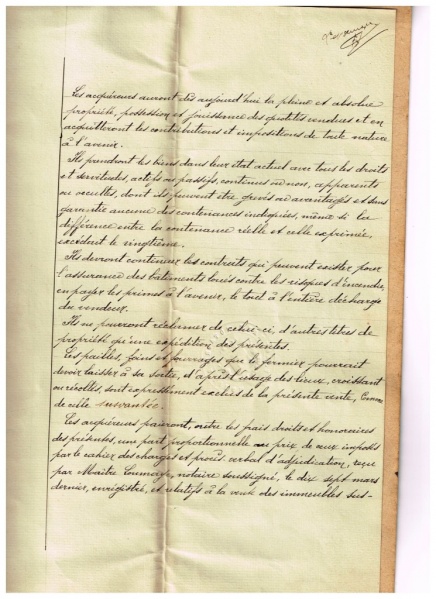 Les acquéreurs auront dès aujourd'hui la pleine et absolue
propriété, possession et jouissance des quotités vendues et en
acquitteront les contributions et impositions de toute nature
à l'avenir.
Ils prendront les biens dans leur état actuel avec tous les droits
et servitudes, actifs ou passifs, continus ou non, apparents
ou occultes, dont ils peuvent être grevés ou avantagés et sans
garantie aucune des contenances indiquées, même si la
différence entre la contenance réelle et celle exprimée,
excédait le vingtième.
Ils devront continuer les contrats qui peuvent exister pour
l'assurance des bâtiments contre les risques d'incendie,
en payer les primes à l'avenir, le tout à l'entière décharge
du vendeur.
Ils ne pourront réclamer de celui-ci, d'autres titres de
propriété qu'une expédition des présentes.
Les pailles, foins et fourrages que le fermier pourrait
devoir laisser à sa sortie, d'après l'usage des lieux, croissant
ou récoltés, sont expressément exclus de la présente vente,
de celle suivante.
Les acquéreurs paieront, outre les frais droits et honoraires
des présentes, une part proportionnelle au prix de ceux imposés
par le cahier des charges et procès verbal d'adjudication, reçu
par Maître notaire soussigné, le dix sept mars
dernier, enregistré, et relatifs à la vente des immeubles sus-